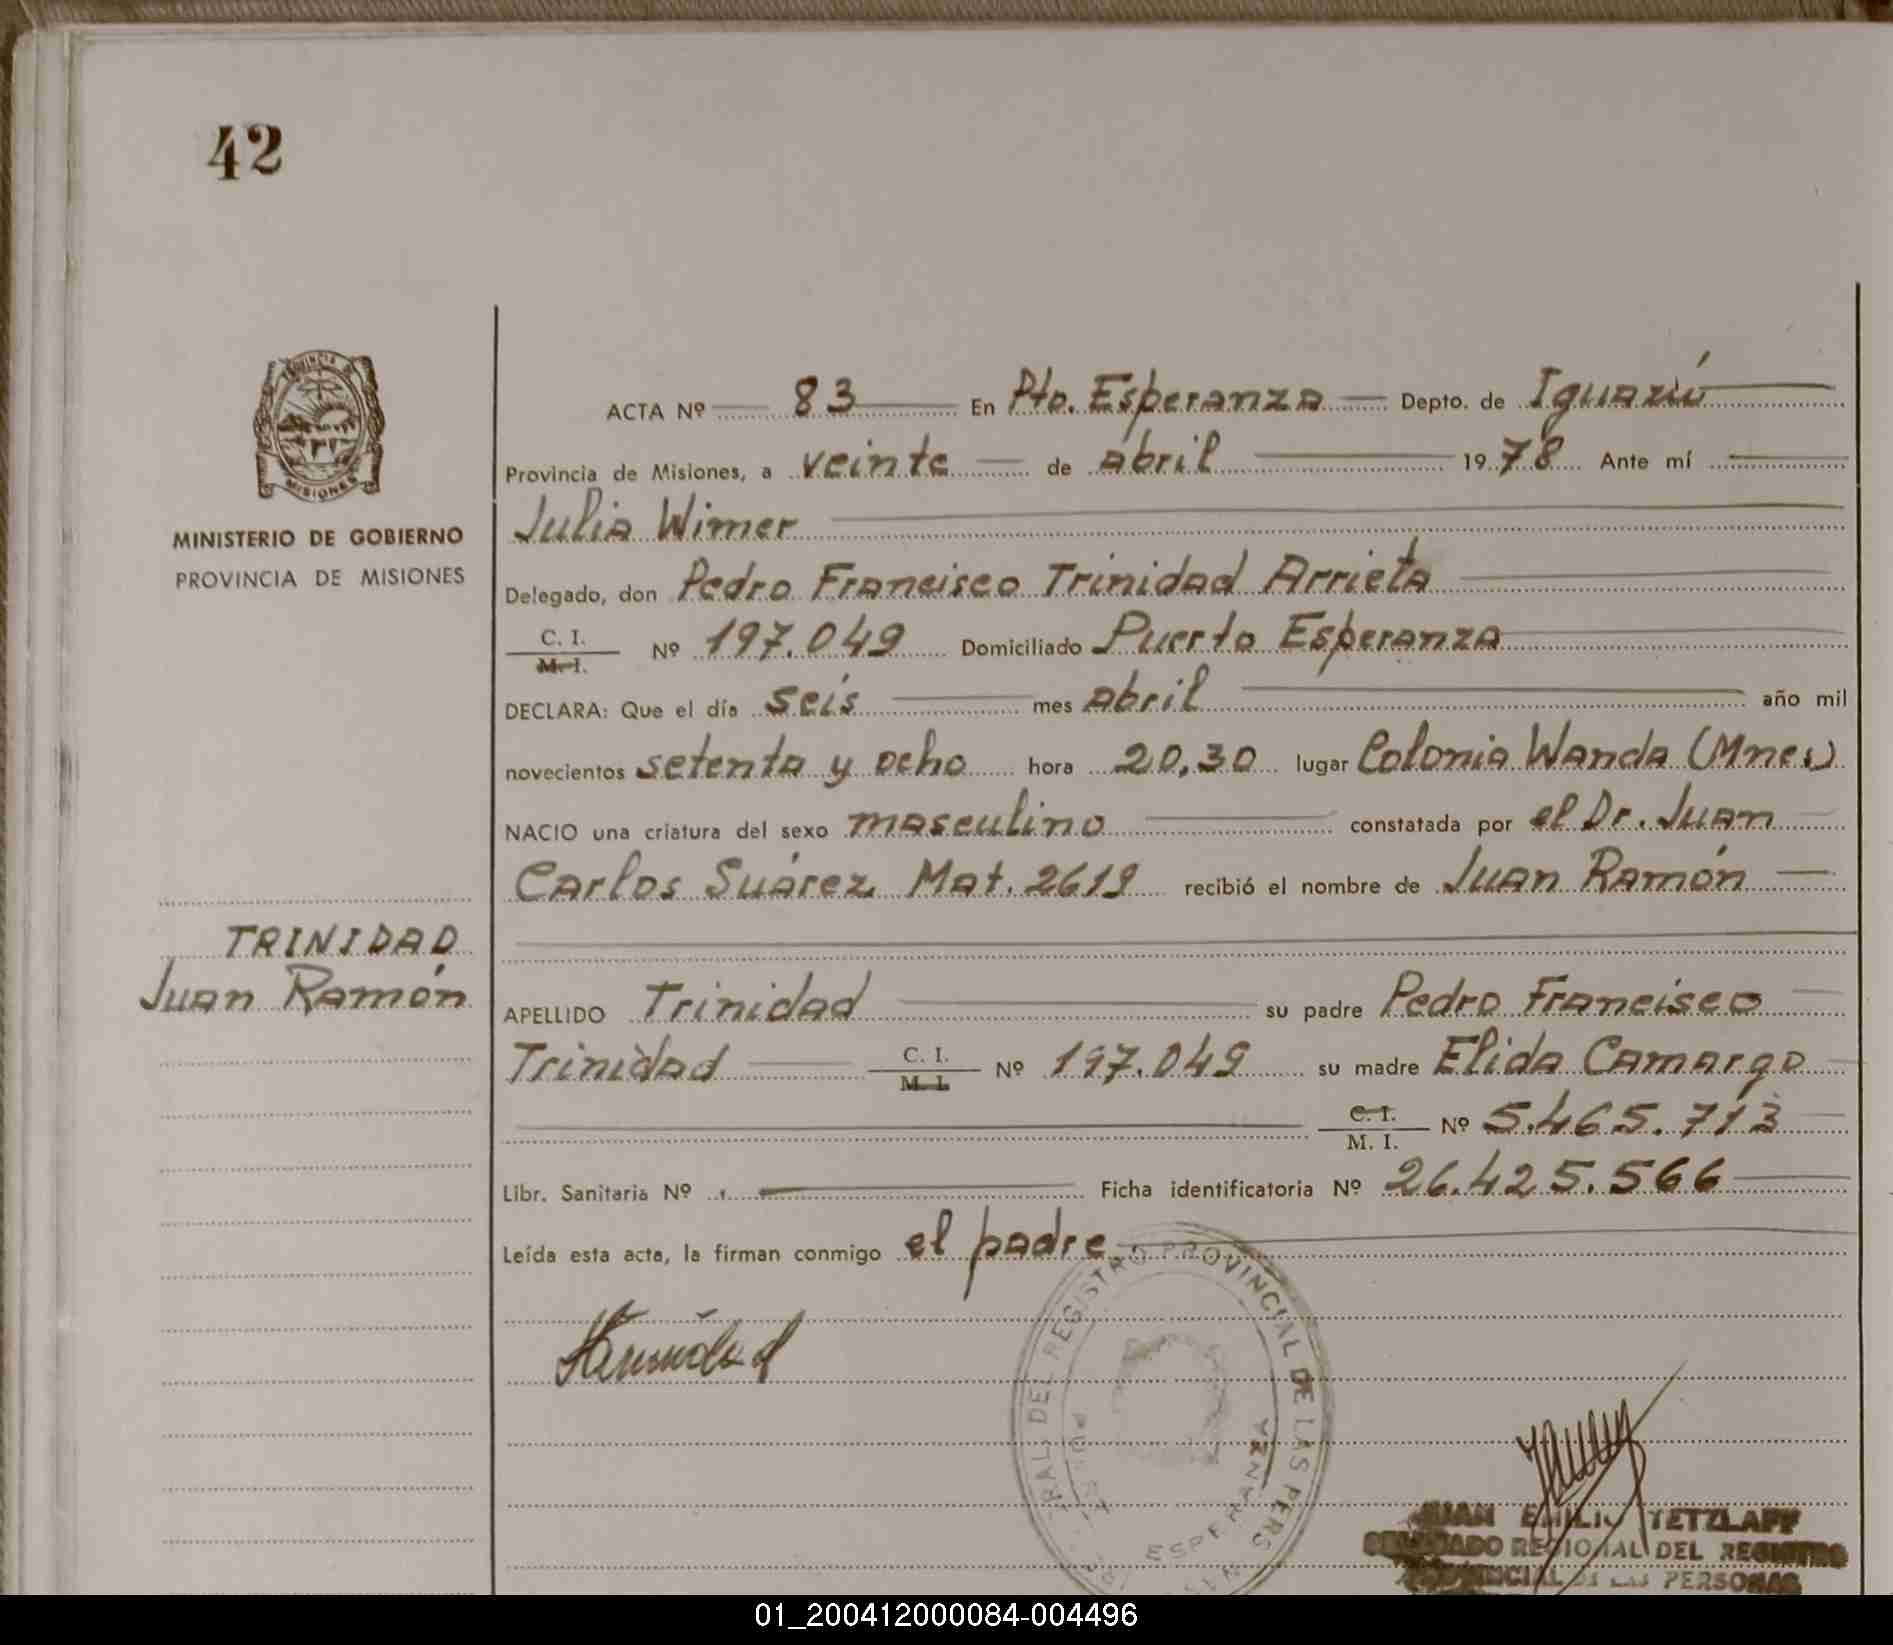 42
PROVINCIA DE
MISIONES
MINISTERIO DE GOBIERNO
PROVINCIA DE MISIONES
TRINIDAD
Juan Ramón
ACTA Nº 83 En Pto. Esperanza Depto. de Iguazú
Provincia de Misiones, a veinte de abril 1978 Ante mí
Julia Wimer
Delegado, don Pedro Francisco Trinidad Arrieta
C. I.
M. I. Nº 197.049 Domiciliado Puerto Esperanza
DECLARA: Que el día seis mes abril año mil
novecientos setenta y ocho hora 20,30 lugar Colonia Wanda (Mnes)
NACIO una criatura del sexo masculino constatada por el Dr. Juan
Carlos Suárez Mat. 2619 recibió el nombre de Juan Ramón
APELLIDO Trinidad su padre Pedro Francisco
Trinidad C. I. M. I. Nº 197.049 su madre Elida Camargo
C. I. M. I. Nº 5.465.713
Libr. Sanitaria Nº Ficha identificatoria Nº 26.425.566
Leída esta acta, la firman conmigo el padre
Trinidad
RAL DEL REGISTRO PROVINCIAL DE LAS PERS
ESPERANZA
JUAN EMILIO TETZLAFF
DELEGADO REGIONAL DEL REGISTRO
PROVINCIAL DE LAS PERSONAS
01_200412000084-004496